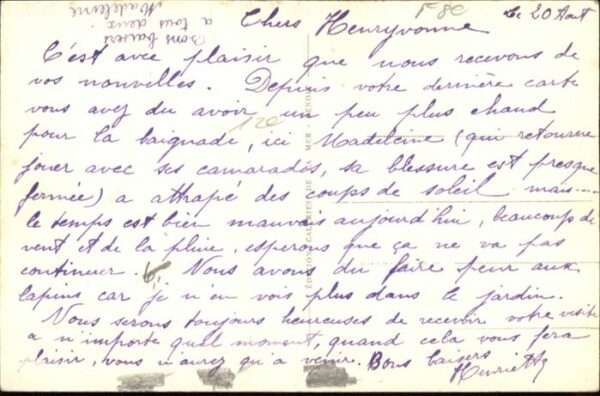 Bons baisers
à tous deux.
Madeleine
Le 20 Août
Chers Henryvonne
C'est avec plaisir que nous recevons de
vos nouvelles. Depuis votre dernière carte
vous avez du avoir un peu plus chaud
pour la baignade, ici Madeleine (qui retourne
jouer avec ses camarades, sa blessure est presque
fermée) a attrapé des coups de soleil mais....
le temps est bien mauvais aujourd'hui, beaucoup de
vent et de la pluie, esperons que ça ne va pas
continuer. Nous avons du faire peur aux
lapins car je n'en vois plus dans le jardin.
Nous serons toujours heureuses de recevoir votre visite
a n'importe quel moment, quand cela vous fera
plaisir, vous n'aurez qu'a venir. Bons baisers
Henriette